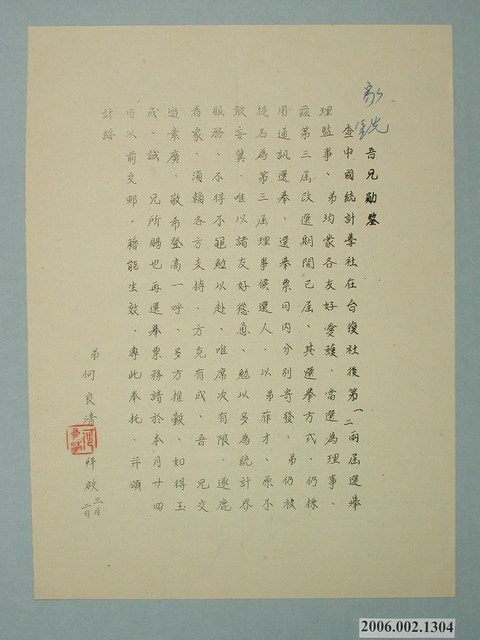 家銑
吾兄勛鑒
查中國統計學社在台復社後第一二兩屆選舉
理監事，弟均蒙各友好愛護，當選為理事，
茲第三屆改選期間已屆，其選舉方式，仍採
用通訊選舉，選舉票同內分別寄發，弟仍被
提名為第三屆理事候選人，以弟菲才，原不
敢妄冀，唯以諸友好慫恿，勉以多為統計界
服務，不得不黽勉以赴，唯席次有限，逐鹿
者眾，須賴各方支持，方克有成，吾兄交
遊素廣，敬希登高一呼，多方推轂，如得玉
成，誠 兄所賜也再選舉票務請於本月廿四
日以前交郵，藉能生效。專此奉托，并頌
計綏
弟何良清 拜啟 三月二日
2006.002.1304